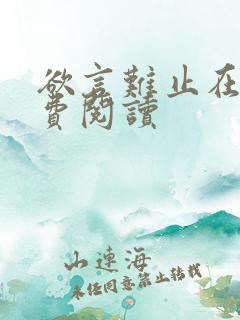 欲言難止在
費閱讀
山連海
未經同意禁止轉載